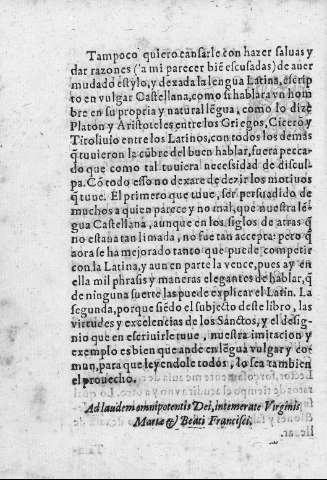 Tampoco quiero cansarle con hazer saluas y
dar razones (a mi parecer biẽ escusadas) de auer
mudado estylo, y dexada la lengua Latina, escrip
to en vulgar Castellana, como si hablara vn hom
bre en su propria y natural lẽgua, como lo dizẽ
Platon y Aristoteles entre los Griegos, Cicerõ y
Titoliuio entre los Latinos, con todos los demas
q̃ tuuieron la cũbre del buen hablar, fuera pecca-
do que como tal tuuiera necesidad de discul-
pa. Cõ todo esso no dexare de dezir los motiuos
q̃ tuue. El primero que tuue, ser persuadido de
muchos a quien parece y no mal, que nuestra lẽ-
gua Castellana, aunque en los siglos de atras q̃
no estaua tan limada, no fue tan accepta: pero q̃
aora se ha mejorado tanto que puede competir
con la Latina, y aun en parte la vence, pues ay en
ella mil phrasis y maneras elegantes de hablar, q̃
de ninguna suerte las puede explicar el Latin. La
segunda, porque siẽdo el subjecto deste libro, las
virtudes y excelencias de los Sãnctos, y el desig-
nio que en escriuirle tuue, nuestra imitacion y
exemplo es bien que ande en lẽgua vulgar y co-
mun, para que leyendole todos, lo sea tambien
el prouecho.
Ad laudem omnipotentis Dei, intemerate Virginis
Mariæ & Beati Francisci.